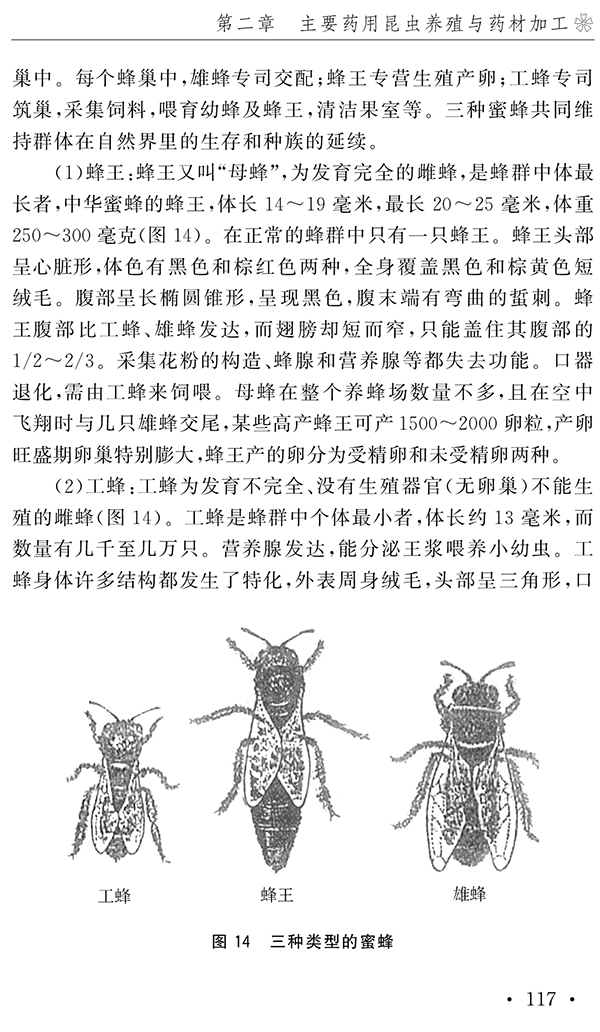 第二章 主要药用昆虫养殖与药材加工
巢中。每个蜂巢中,雄蜂专司交配;蜂王专营生殖产卵;工蜂专司
筑巢,采集饲料,喂育幼蜂及蜂王,清洁果室等。三种蜜蜂共同维
持群体在自然界里的生存和种族的延续。
(1)蜂王:蜂王又叫“母蜂”,为发育完全的雌蜂,是蜂群中体最
长者,中华蜜蜂的蜂王,体长 14～19 毫米,最长 20～25 毫米,体重
250～300 毫克(图 14)。在正常的蜂群中只有一只蜂王。蜂王头部
呈心脏形,体色有黑色和棕红色两种,全身覆盖黑色和棕黄色短
绒毛。腹部呈长椭圆锥形,呈现黑色,腹末端有弯曲的蜇刺。蜂
王腹部比工蜂、雄蜂发达,而翅膀却短而窄,只能盖住其腹部的
1/2～2/3。采集花粉的构造、蜂腺和营养腺等都失去功能。口器
退化,需由工蜂来饲喂。母蜂在整个养蜂场数量不多,且在空中
飞翔时与几只雄蜂交尾,某些高产蜂王可产 1500～2000 卵粒,产卵
旺盛期卵巢特别膨大,蜂王产的卵分为受精卵和未受精卵两种。
(2)工蜂:工蜂为发育不完全、没有生殖器官(无卵巢)不能生
殖的雌蜂(图 14)。工蜂是蜂群中个体最小者,体长约 13 毫米,而
数量有几千至几万只。营养腺发达,能分泌王浆喂养小幼虫。工
蜂身体许多结构都发生了特化,外表周身绒毛,头部呈三角形,口
工蜂 蜂王 雄蜂
图 14 三种类型的蜜蜂
· 117 ·